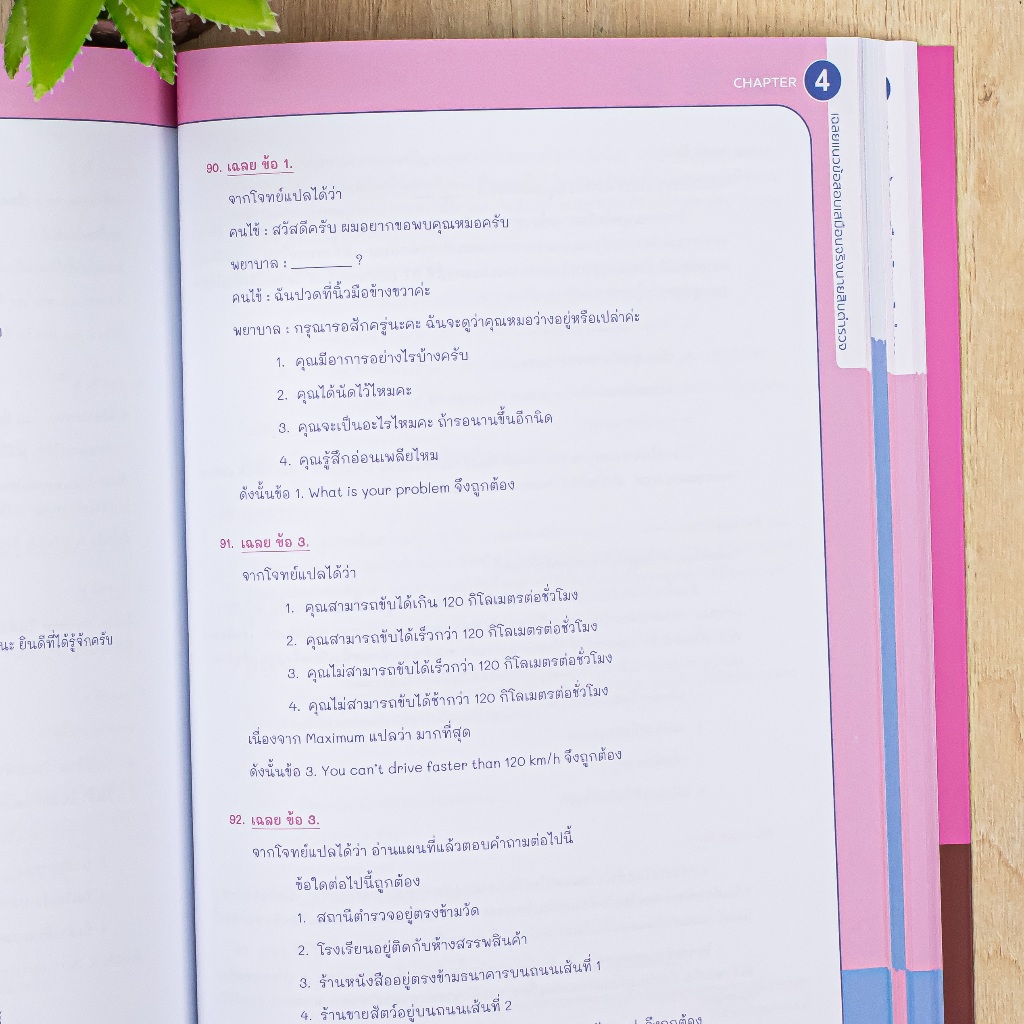 CHAPTER 4
เฉลยแนวข้อสอบเสมือนจริงนายสิบตำรวจ
90. เฉลย ข้อ 1.
จากโจทย์แปลได้ว่า
คนไข้ : สวัสดีครับ ผมอยากขอพบคุณหมอครับ
พยาบาล : ________ ?
คนไข้ : ฉันปวดที่นิ้วมือข้างขวาค่ะ
พยาบาล : กรุณารอสักครู่นะคะ ฉันจะดูว่าคุณหมอว่างอยู่หรือเปล่าค่ะ
1. คุณมีอาการอย่างไรบ้างครับ
2. คุณได้นัดไว้ไหมคะ
3. คุณจะเป็นอะไรไหมคะ ถ้ารอนานขึ้นอีกนิด
4. คุณรู้สึกอ่อนเพลียไหม
ดังนั้นข้อ 1. What is your problem จึงถูกต้อง
91. เฉลย ข้อ 3.
จากโจทย์แปลได้ว่า
1. คุณสามารถขับได้เกิน 120 กิโลเมตรต่อชั่วโมง
2. คุณสามารถขับได้เร็วกว่า 120 กิโลเมตรต่อชั่วโมง
3. คุณไม่สามารถขับได้เร็วกว่า 120 กิโลเมตรต่อชั่วโมง
4. คุณไม่สามารถขับได้ช้ากว่า 120 กิโลเมตรต่อชั่วโมง
เนื่องจาก Maximum แปลว่า มากที่สุด
ดังนั้นข้อ 3. You can't drive faster than 120 km/h จึงถูกต้อง
92. เฉลย ข้อ 3.
จากโจทย์แปลได้ว่า อ่านแผนที่แล้วตอบคำถามต่อไปนี้
ข้อใดต่อไปนี้ถูกต้อง
1. สถานีตำรวจอยู่ตรงข้ามวัด
2. โรงเรียนอยู่ติดกับห้างสรรพสินค้า
3. ร้านหนังสืออยู่ตรงข้ามธนาคารบนถนนเส้นที่ 1
4. ร้านขายสัตว์อยู่บนถนนเส้นที่ 2
จึงถูกต้อง
นะ ยินดีที่ได้รู้จักครับ